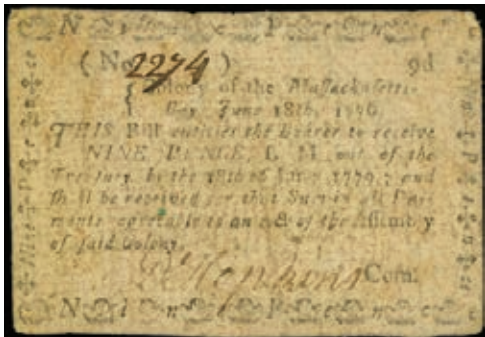 N i n e P e n c e
(No. 2274) 9d
Colony of the Massachusetts-
Bay, June 18th, 1776.
THIS Bill entitles the Bearer to receive
NINE PENCE, L. M. out of the
Treasury, by the 18th of June, 1779; and
shall be received for that Sum in all Pay-
ments agreeable to an Act of the Assembly
of said Colony.
D Hopkins Com.
N i n e P e n c e